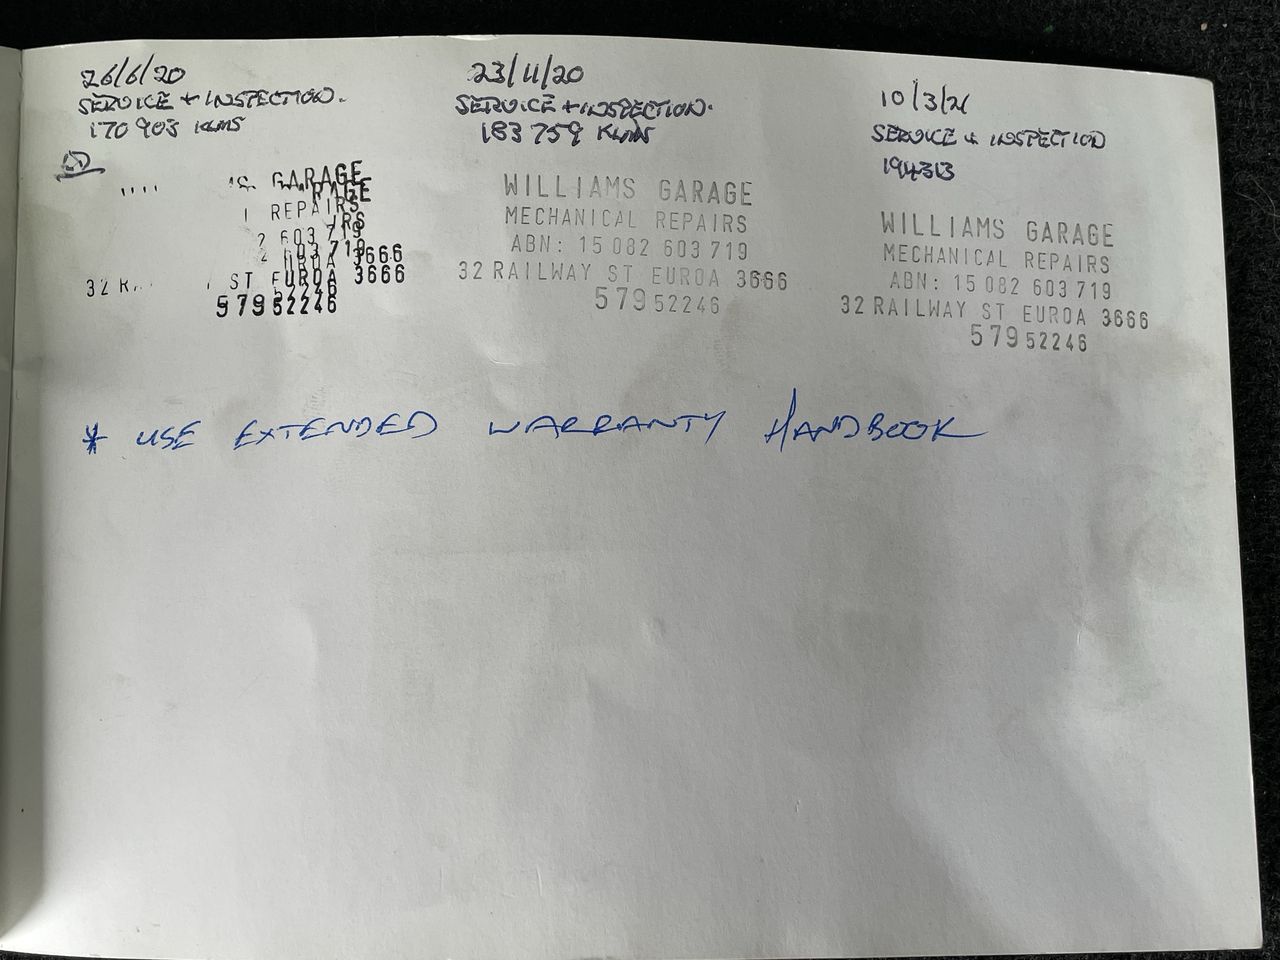 26/6/20
SERVICE + INSPECTION.
170 903 KLMS
GARAGE
RAGE
REPAIRS
IRS
2 603 719
2 603 719
EUROA 3666
32 R ST EUROA 3666
52246
579 52246
23/11/20
SERVICE + INSPECTION.
183 759 KLMS
WILLIAMS GARAGE
MECHANICAL REPAIRS
ABN: 15 082 603 719
32 RAILWAY ST EUROA 3666
579 52246
10/3/21
SERVICE + INSPECTION
194313
WILLIAMS GARAGE
MECHANICAL REPAIRS
ABN: 15 082 603 719
32 RAILWAY ST EUROA 3666
579 52246
* USE EXTENDED WARRANTY HANDBOOK